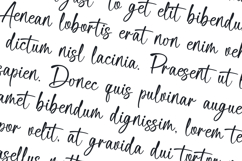 to get elit bibendu
Aenean lobortis erat non enim veh
dictum nisl lacinia. Praesent ut l
sapien. Donec quis pulvinar augue
amet bibendum dignissim. lorem te
por velit. at gravida dui torto